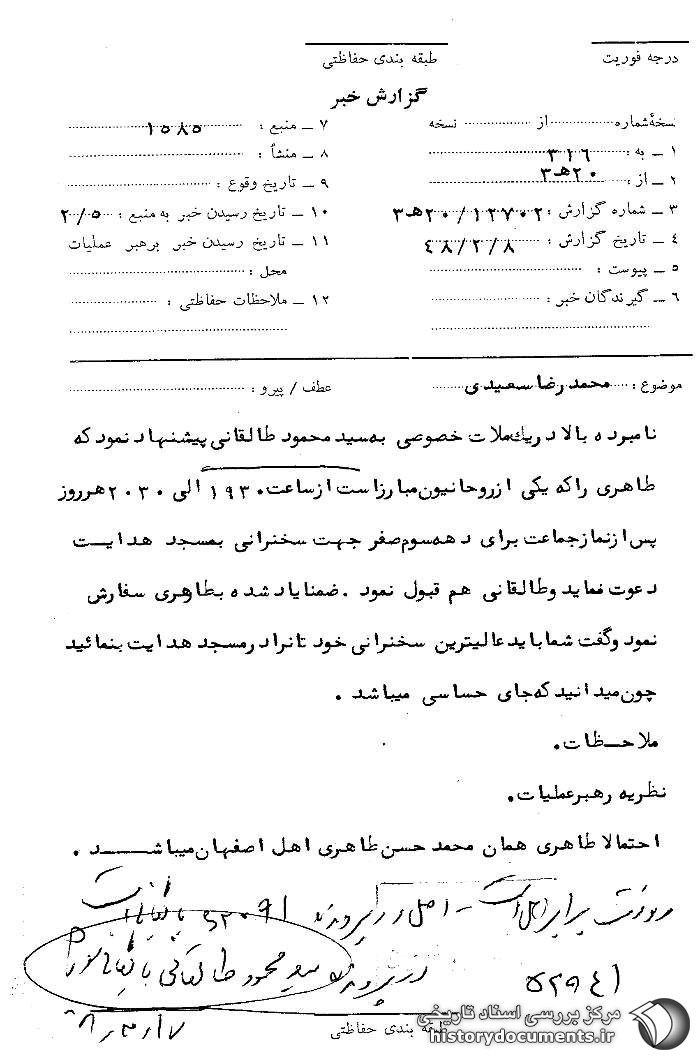 درجه فوریت
طبقه بندی حفاظتی
گزارش خبر
نسخهٔ شماره از نسخه
۱ ــ به : ۳۱٦
۲ ــ از : ۲۰هـ۳
۳ ــ شماره گزارش : ۲۰/۱۲۷۰۲هـ۳
٤ ــ تاریخ گزارش : ٤۸/۲/۸
۵ ــ پیوست :
٦ ــ گیرندگان خبر :
۷ ــ منبع : ۱۵۸۵
۸ ــ منشأ :
۹ ــ تاریخ وقوع :
۱۰ ــ تاریخ رسیدن خبر به منبع : ۲/۵
۱۱ ــ تاریخ رسیدن خبر برهبر عملیات
محل :
۱۲ ــ ملاحظات حفاظتی :
موضوع : محمد رضا سعیدی
عطف / پیرو :
نامبرده بالا در یک ملات خصوصی به سید محمود طالقانی پیشنهاد نمود که
طاهری را که یکی از روحانیون مبارز است از ساعت ۱۹۳۰ الی ۲۰۳۰ هر روز
پس از نماز جماعت برای دهه سوم صفر جهت سخنرانی بمسجد هدایت
دعوت نماید و طالقانی هم قبول نمود . ضمنا یاد شده بطاهری سفارش
نمود و گفت شما باید عالیترین سخنرانی خود تانرا در مسجد هدایت بنمائید
چون میدانید که جای حساسی میباشد .
ملاحظات .
نظریه رهبر عملیات .
احتمالا طاهری همان محمد حسن طاهری اهل اصفهان میباشد .
رونوشت برابر اصل است - اصل در پرونده
در پرونده سید محمود طالقانی بایگانی شود
طبقه بندی حفاظتی
مرکز بررسی اسناد تاریخی
historydocuments.ir